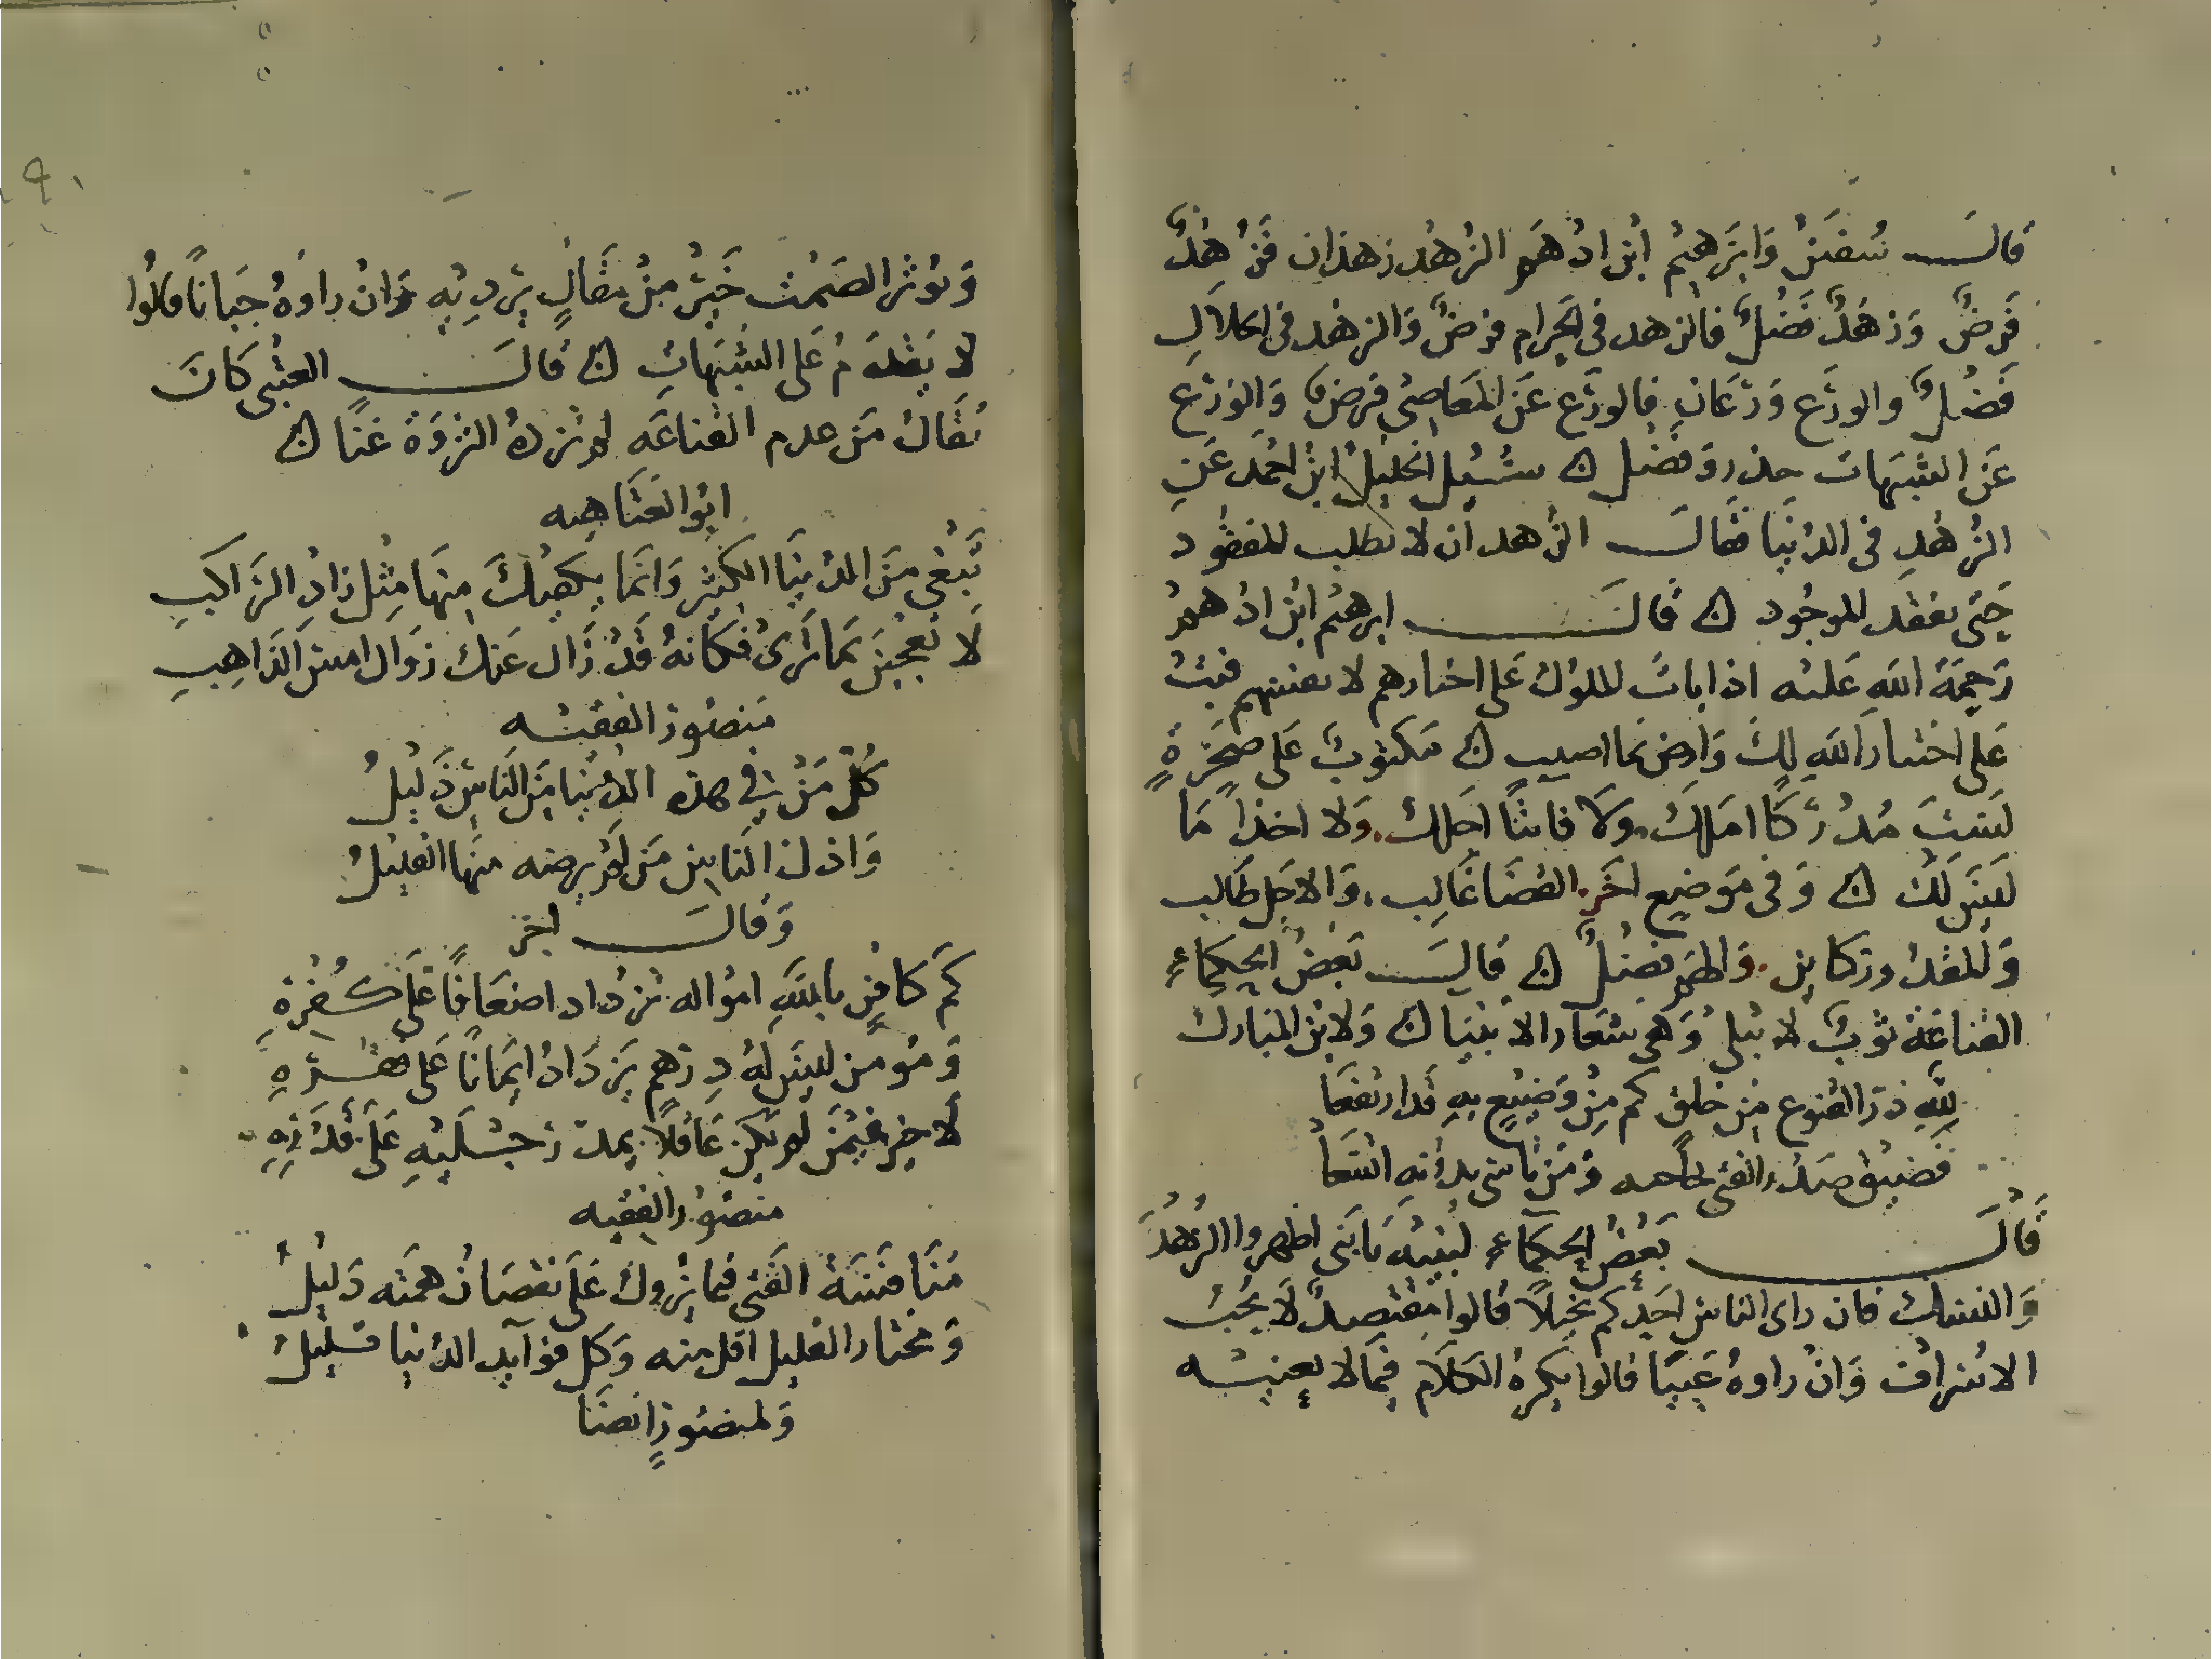 قالَ سُفيٰنُ وَابرَهيمُ ابن ادْهَم الزُهْد زهذان فَزُهْدٌ
فَرضٌ وَزهَدٌ فَضْلٌ فالزهد فى الحَرام فرضٌ وَالزهْد فى الحلالِ
فَضْلٌ والورَع وَرَعَانِ فالورَع عَن المَعَاصِى فَرضٌ وَالوَرَع
عَن الشبَهات حذر وَفضل ۞ سُئِل الخليلُ ابن احْمَد عَنِ
الزُهْدِ فى الدُنيَا فقَالَ الزُهد ان لا تطلب المفقُود
حَتى تفقد الموجُود ۞ قَالَ ابرهيم ابْن ادْهمْ
رَحمَةُ اللهِ عَليْه اذا باتَ الملوك عَلى اختيارهم لا تغبنهم فبتْ
عَلى اختيار اللهِ لكَ وَارض بما اصيب ۞ مَكتوبٌ عَلى صَخرَةٍ
لَستَ مُدْرَكا امَلكَ وَلا فائتًا اجَلكَ وَلا اخذاً مَا
لَيسَ لَكَ ۞ وَفى مَوَضِع اخَر القضَا غَالِب وَالاجَل طَالب
وَالمقدُور كاين وَالهَم فضلٌ ۞ قالَ بَعضُ الحكماءِ
القناعَة ثوَبٌ لا يَبلى وَهى شعَار الانبيا ۞ وَلابن المبارك
لِلهِ دَرّ القنوع مِن خلق كم مِنْ وَضِيع بهِ قد ارتفعَا
فَضيق صَدر الفتى لحاجه وَمَن تاسّى بدُنهِ اتسَعَا
قالَ بَعْضُ الحكمَاءِ لبنيْه يَا بَنى اظهروا الزُهْدَ
وَالنسك فان راى الناس احَدكم بخيلاً قالوا مقتصدٌ لا يُحبُ
الاسْرافَ وَانْ راوهُ عَييّا قالوا يكرهُ الكلَام فيمَا لا يعنيْه
وَيوُثر الصَمْت خَيْرٌ مِنْ مَقالٍ يُرديْهِ وَانْ راوَهُ جبَاناً قالُوا
لا يقدمُ عَلى الشبَهاتِ ۞ قالَ العتبى كَانَ
يُقَالُ مَن عدم القناعَه لم تزدهُ الثروَة غنًا ۞
ابُو العَتَاهيه
تَبْغى مِنَ الدُنيَا الكَثِيْر وَانمَا يكفِيْكَ مِنهَا مِثْل زادِ الرَاكبِ
لَا تعْجبَن بمَا تَرَى فكَانهُ قَدْ زَال عَنك زوَال امس الذَاهِبِ
مَنصُور الفقيْه
كُلْ مَنْ فى هذه الدُنيَا مَن النَاسِ ذَليْلُ
وَاذل النَاس مَن لَم يرضه منهَا القليْلُ
وَقالَ اخر
كم كافرٍ باللهِ امْواله تزدَاد اضعَافًا عَلَى كُفْرهِ
وَمُومن ليسَ لهُ دِرهم يَزدَادُ ايمَانًا عَلى فقْرهِ
لَا خير فيْمَن لم يَكن عَاقلاً يمد رجْلَيْهِ عَلَى قَدْرِهِ
منصُور الفقيه
مُنَافَسَة الفَتى فيما يزُول عَلَى نقصَان همتَه دَليْلُ
وَمختار القليل اقل مِنه وَكل فوَآيد الدُنيا قليْلُ
وَلمنصُورٍ ايضَا